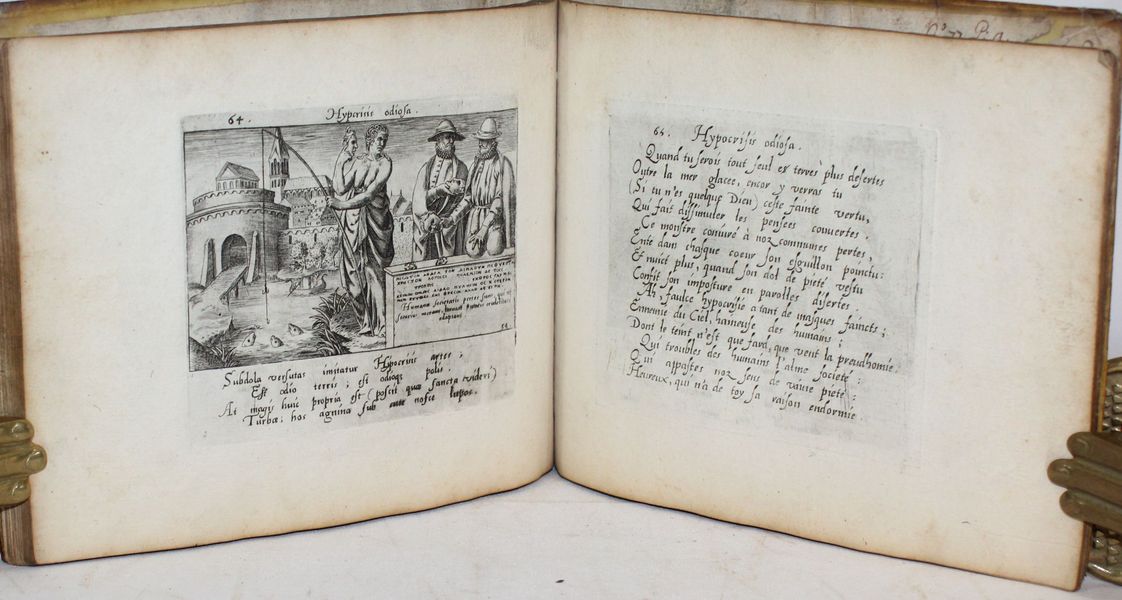 64.
Hypcrisis odiosa.
Humanæ societatis pestes sunt, qui et
adaptant
Subdola versutas imitatur Hypocrisis artes;
Est odio terris; est odioq polis.
At magis huic propria est (poscit quæ sancta videri)
Turbæ; hos agninâ sub cute nosce lupos.
65. Hypocrisis odiosa.
Quand tu serois tout seul es terres plus desertes
Outre la mer glacee, encor y verras tu
(Si tu n'es quelque Dieu) ceste fainte vertu,
Qui fait dissimuler les pensees couuertes.
Ce monstre coniuré à noz communes pertes,
Ente dans chasque coeur son esguillon pointu:
Et nuict plus, quand son dol de pieté vestu
Confit son imposture en parolles disertes.
Ah, faulce hypocrisie a tant de masques faincts;
Ennemie du Ciel, haineuse des humains;
Dont le teint n'est que fard, que vent la preudhomie.
Qui troubles des humains l'alme societé:
Qui appastes noz sens de vaine pieté:
Heureux, qui n'a de toy sa raison endormie.